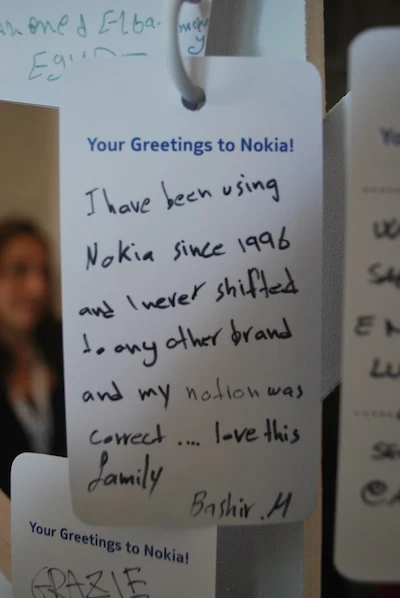 Elba
Egu
Your Greetings to Nokia!
I have been using
Nokia since 1996
and I never shifted
to any other brand
and my notion was
correct .... love this
family
Bashir.M
Your Greetings to Nokia!
GRAZIE
Yo
E
LU